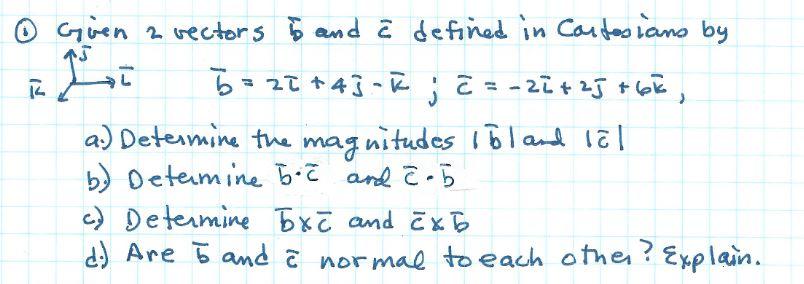 ① Given 2 vectors b̄ and c̄ defined in Cartesians by
j̄
k̄ ī b̄ = 2ī + 4j̄ - k̄ ; c̄ = -2ī + 2j̄ + 6k̄ ,
a.) Determine the magnitudes |b̄| and |c̄|
b) Determine b̄·c̄ and c̄·b̄
c) Determine b̄xc̄ and c̄xb̄
d.) Are b̄ and c̄ normal to each other? Explain.